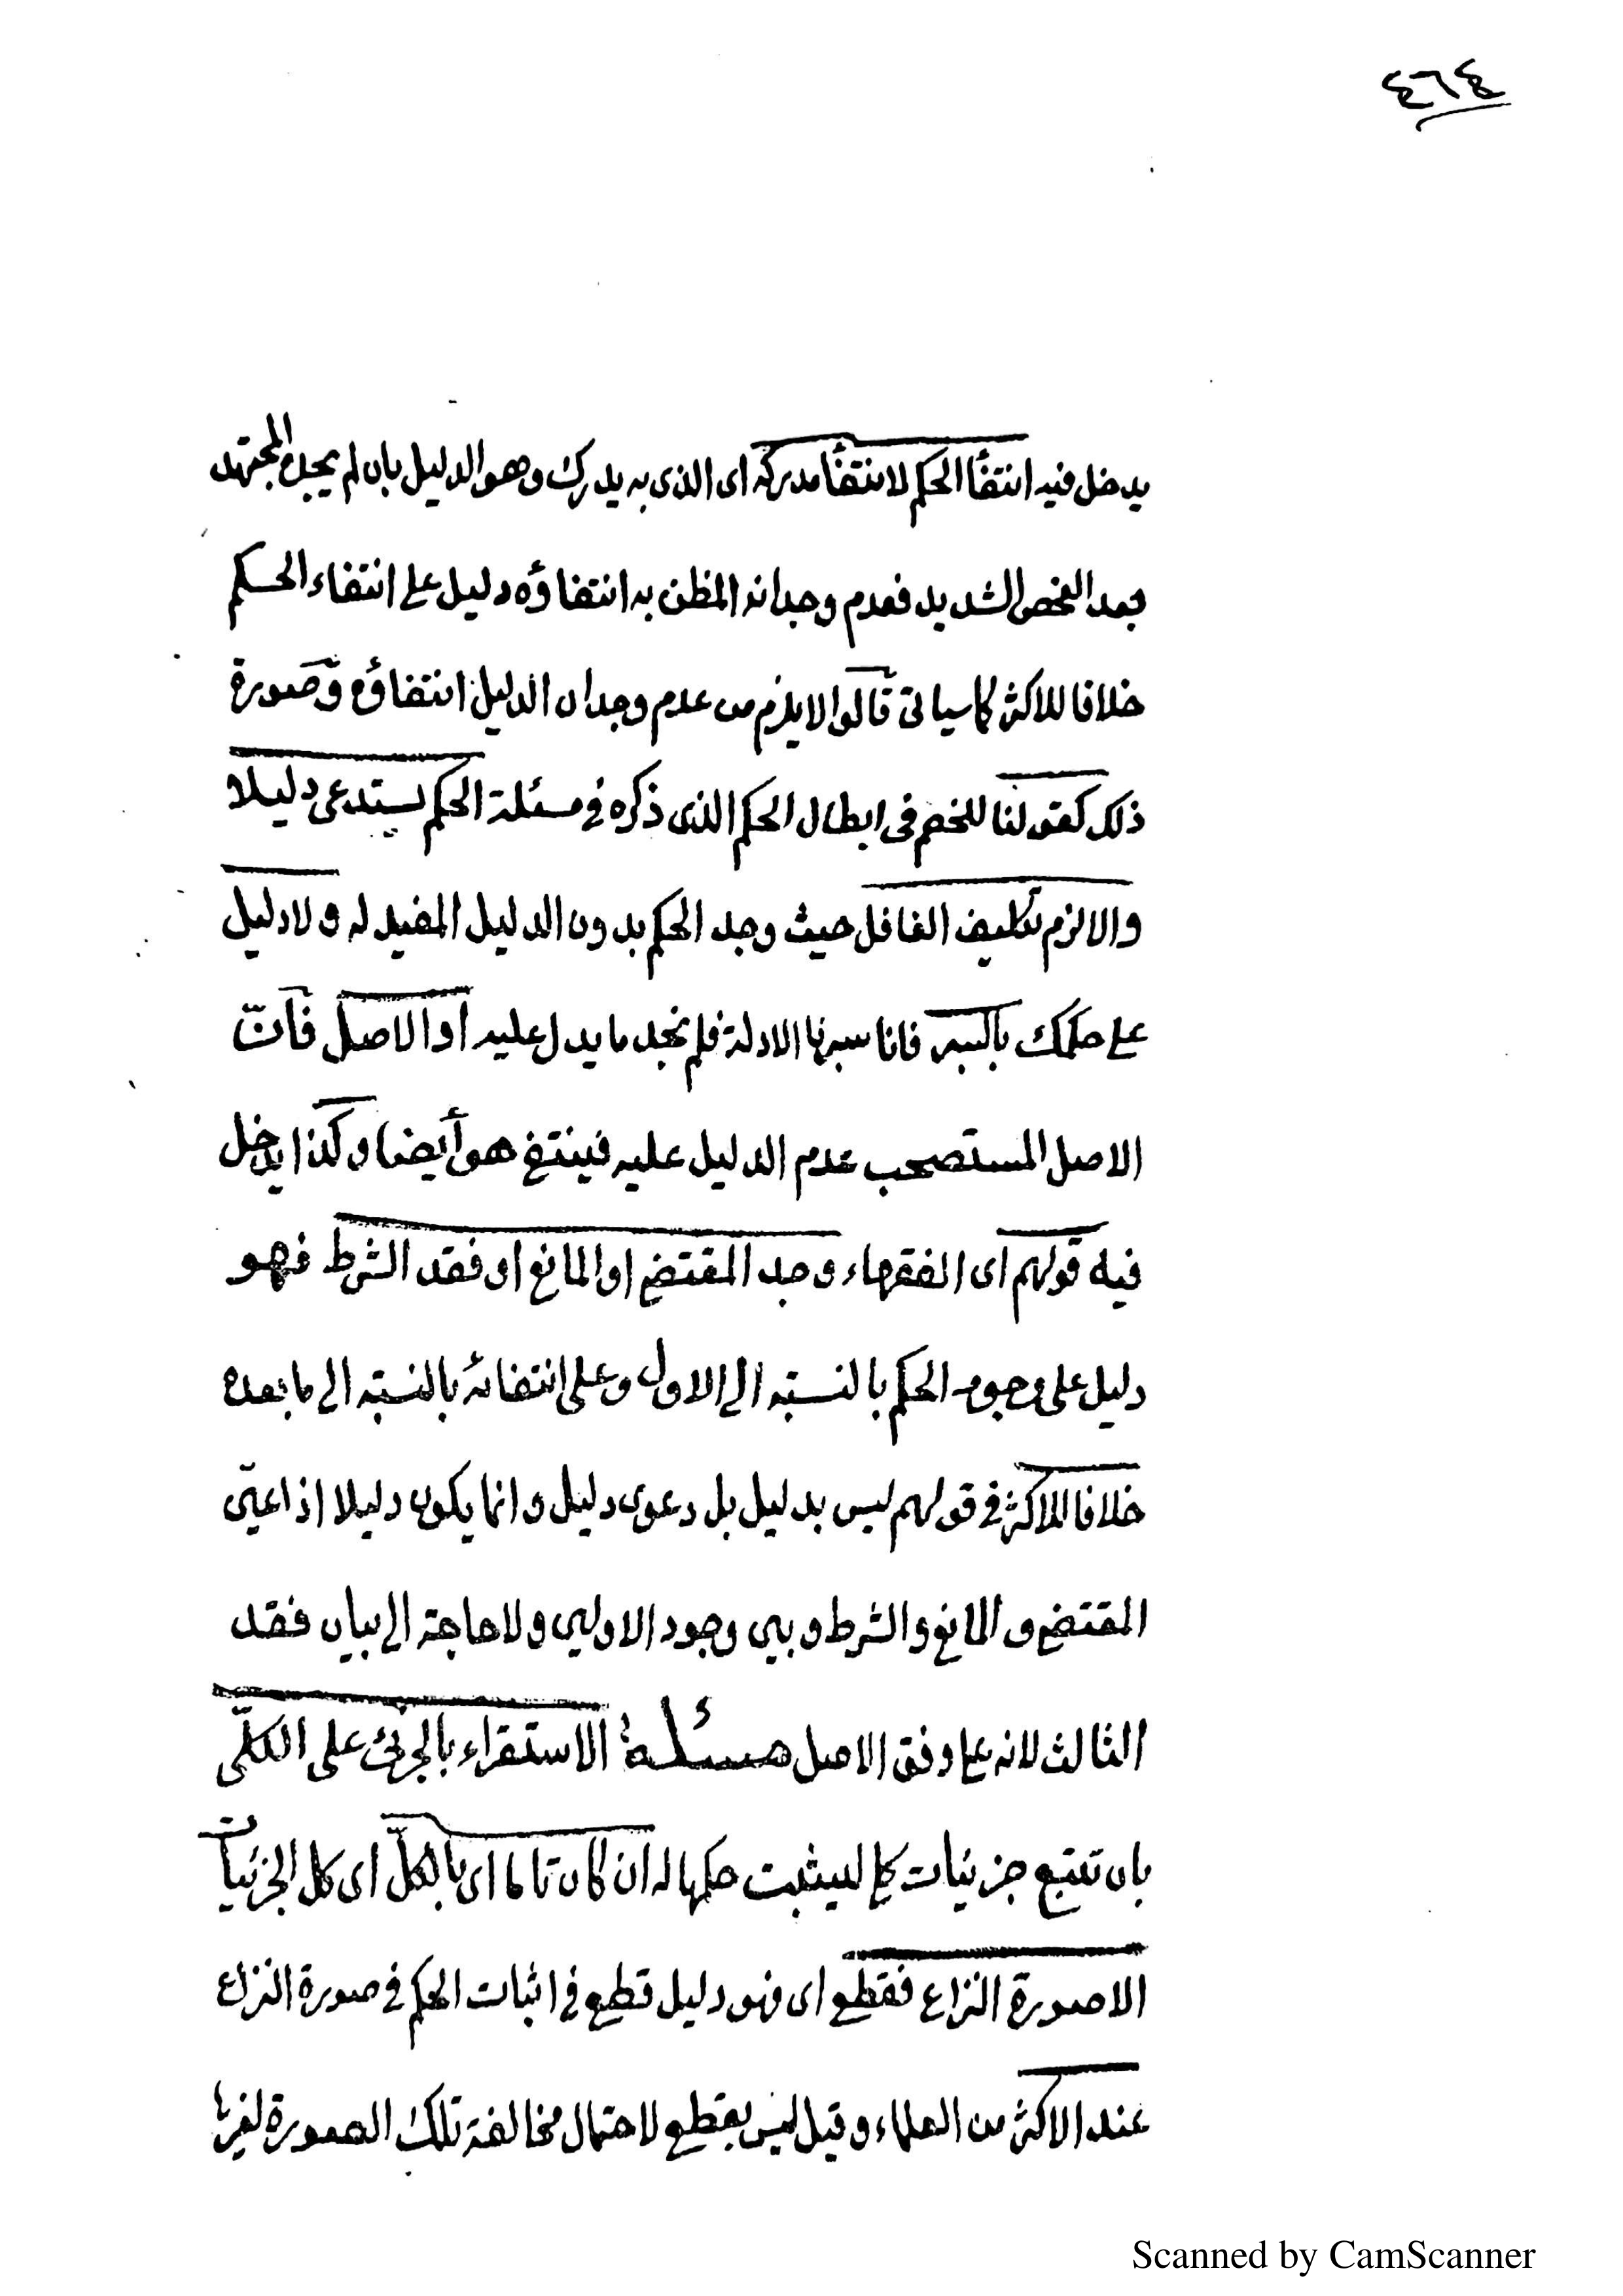 ٤٦٤
يدخل فيه انتفأ الحكم لانتفأ مدركه اى الذى به يدرك وهو الدليل بان لم يجده المجتهد
بعد الفحص الشديد فعدم وجدانه المظن به انتفاؤه دليل على انتفاء الحكم
خلافا للاكثر كما سياتى قالوا لا يلزم من عدم وجدان الدليل انتفاؤه وصورة
ذلك كقولنا للخصم فى ابطال الحكم الذى ذكره فى مسئلة الحكم يستدعى دليلا
والا لزم تكليف الغافل حيث وجد الحكم بدون الدليل المفيد له ولا دليل
على حكمك بالسبر فانا سبرنا الادلة فلم نجد ما يدل عليه او الاصل فانّ
الاصل المستصحب عدم الدليل عليه فينتفى هو أيضا وكذا يدخل
فيه قولهم اى الفقهاء وجد المقتضى او المانع او فقد الشرط فهو
دليل على وجود الحكم بالنسبته الى الاول وعلى انتفائه بالنسبته الى ما بعده
خلافا للاكثر فى قولهم ليس بدليل بل دعوى دليل وانما يكون دليلا اذا عيّن
المقتضى والمانع والشرط وبين وجود الاولين ولا حاجة الى بيان فقد
الثالث لانه على وفق الاصل مسئلة الاستقراء بالجزئى على الكلّى
بان تتبع جزئيات كلى ليثبت حكمها له ان كان تاما اى بالكلّ اى كل الجزئيات
الا صورة النزاع فقطعى اى فهو دليل قطعى فى اثبات الحكم فى صورة النزاع
عند الاكثر من العلماء وقيل ليس بقطعى لاحتمال مخالفة تلك الصورة لغيرها
Scanned by CamScanner